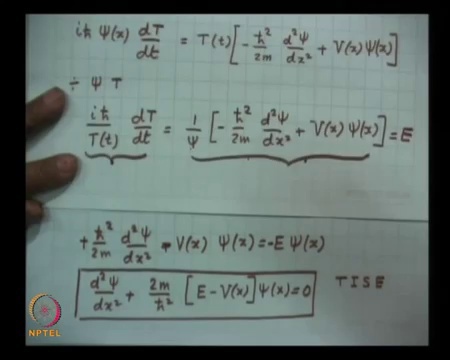 iħ Ψ(x) dT/dt = T(t) [ - ħ²/2m d²Ψ/dx² + V(x) Ψ(x) ]
÷ Ψ T
iħ/T(t) dT/dt = 1/Ψ [ - ħ²/2m d²Ψ/dx² + V(x) Ψ(x) ] = E
+ ħ²/2m d²Ψ/dx² - V(x) Ψ(x) = -E Ψ(x)
d²Ψ/dx² + 2m/ħ² [ E - V(x) ] Ψ(x) = 0 TISE
NPTEL